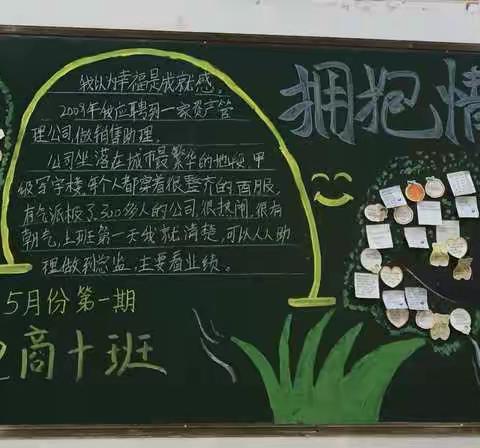 我认为幸福是成就感。
2003年我应聘到一家资产管
理公司做销售助理。
公司坐落在城市最繁华的地段甲
级写字楼每个人都穿着很整齐的西服,
有气派极了300多人的公司很热闹很有
朝气,上班第一天我就清楚,可以从助
理做到总监,主要看业绩。
5月份第一期
商十班
拥抱情